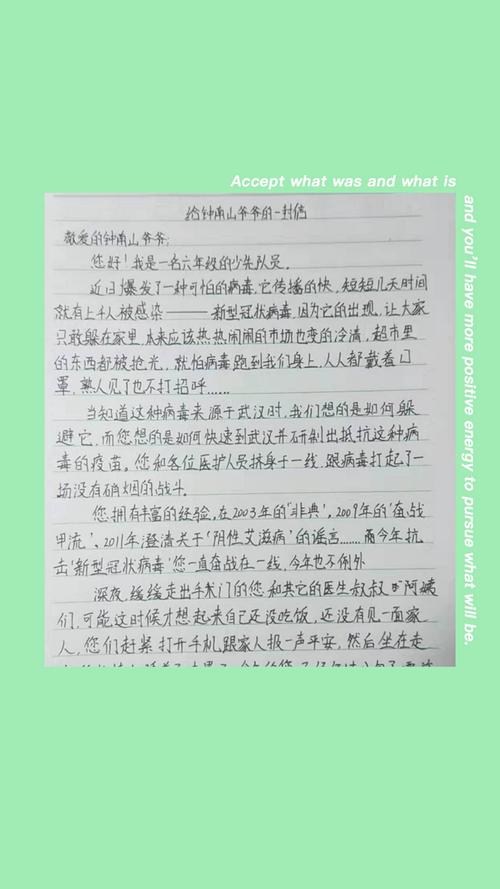 Accept what was and what is
and you'll have more positive energy to pursue what will be.
给钟南山爷爷的一封信
敬爱的钟南山爷爷:
您好!我是一名六年级的少先队员。
近日爆发了一种可怕的病毒,它传播的快,短短几天时间
就有上千人被感染———新型冠状病毒,因为它的出现,让大家
只敢躲在家里,本来应该热热闹闹的市场也变的冷清,超市里
的东西都被抢光,就怕病毒跑到我们身上,人人都戴着口
罩,熟人见了也不打招呼……
当知道这种病毒来源于武汉时,我们想的是如何躲
避它,而您想的是如何快速到武汉并研制出抵抗这种病
毒的疫苗。您和各位医护人员挤身于一线,跟病毒打起了一
场没有硝烟的战斗。
您拥有丰富的经验,在2003年的"非典",2009年的'奋战
甲流'、2011年澄清关于'阴性艾滋病'的谣言……而今年抗
击'新型冠状病毒'您一直奋战在一线,今年也不例外
深夜,缓缓走出手术门的您和其它的医生叔叔阿姨
们,可能这时候才想起来自己还没吃饭,还没有见一面家
人,您们赶紧打开手机跟家人报一声平安,然后坐在走